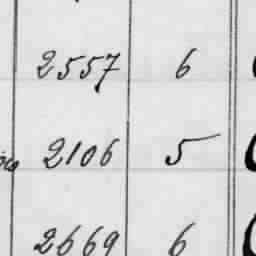 2557 6
2106 5
2669 6